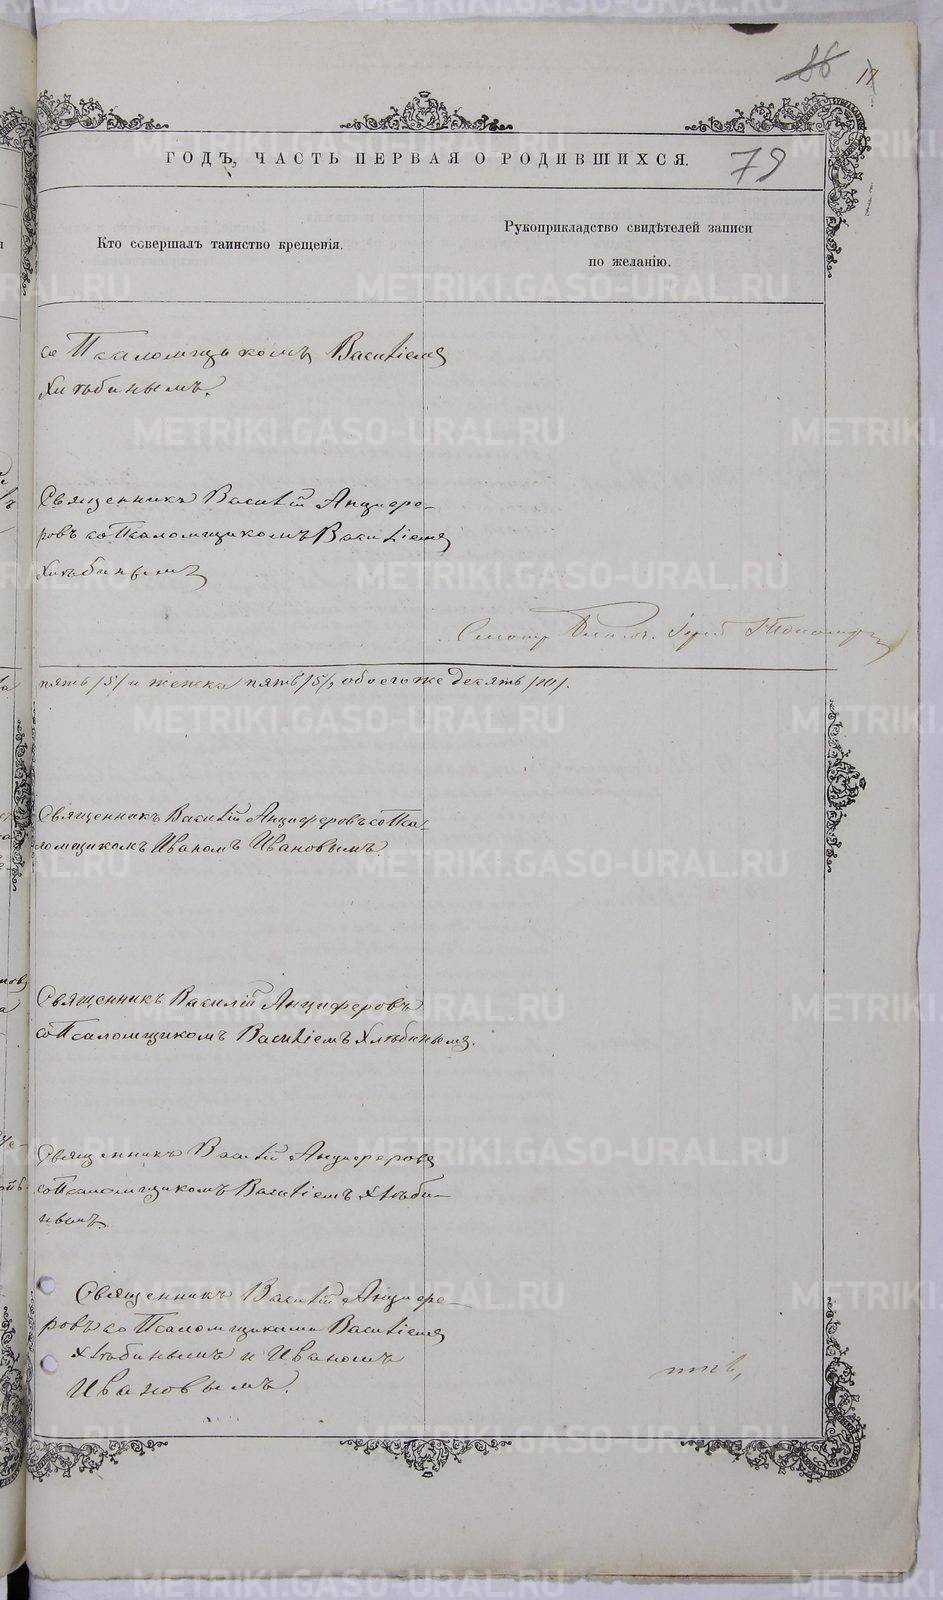 86 17
ГОДЪ, ЧАСТЬ ПЕРВАЯ О РОДИВШИХСЯ. 79
Кто совершалъ таинство крещенія.
Рукоприкладство свидѣтелей записи
по желанію.
со Псаломщикомъ Василіемъ
Хлѣбинымъ.
Священникъ Василій Анцифе-
ровъ со Псаломщикомъ Василіемъ
Хлѣбинымъ
пять /5/ и женска пять /5/, обоего же десять /10/.
Священникъ Василій Анциферовъ со Пса-
ломщикомъ Иваномъ Ивановымъ.
Священникъ Василій Анциферовъ
со Псаломщикомъ Василіемъ Хлѣбинымъ.
Священникъ Василій Анциферовъ
со Псаломщикомъ Василіемъ Хлѣби-
нымъ.
Священникъ Василій Анцифе-
ровъ со Псаломщиками Василіемъ
Хлѣбинымъ и Иваномъ
Ивановымъ.
METRIKI.GASO-URAL.RU